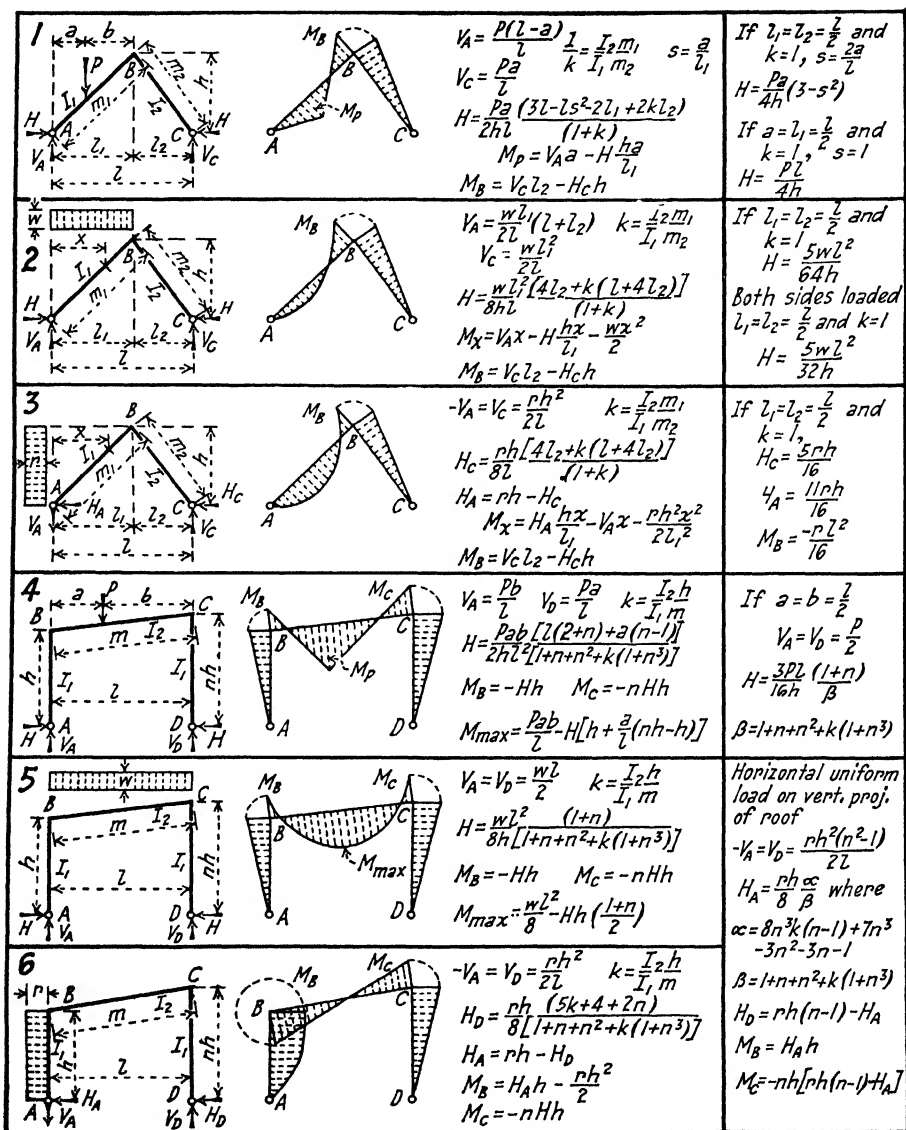 1
a b
P
B
h
m₂
I₁ m₁ I₂
H A C H
V_A l₁ l₂ V_C
l
M_B
B
M_P
A C
V_A = P(l-a)/l 1/k = I₂m₁/I₁m₂ s = a/l₁
V_C = Pa/l
H = Pa/2hl (3l-ls²-2l₁+2kl₂)/(1+k)
M_P = V_A a - H ha/l₁
M_B = V_C l₂ - H_C h
If l₁=l₂=l/2 and
k=1, s=2a/l
H = Pa/4h (3-s²)
If a=l₁=l/2 and
k=1, s=1
H = Pl/4h
w
2
x
B
h
m₂
I₁ m₁ I₂
H C H
V_A l₁ l₂ V_C
l
M_B
B
A C
V_A = wl₁/2l (l+l₂) k = I₂m₁/I₁m₂
V_C = wl₁²/2l
H = wl₁²/8hl [4l₂+k(l+4l₂)]/(1+k)
M_X = V_A x - H hx/l₁ - wx²/2
M_B = V_C l₂ - H_C h
If l₁=l₂=l/2 and
k=1
H = 5wl²/64h
Both sides loaded
l₁=l₂=l/2 and k=1
H = 5wl²/32h
3
B
x
r
h
m₂
I₁ m₁ I₂
A H_A C H_C
V_A l₁ l₂ V_C
l
M_B
B
A C
-V_A = V_C = rh²/2l k = I₂m₁/I₁m₂
H_C = rh/8l [4l₂+k(l+4l₂)]/(1+k)
H_A = rh - H_C
M_X = H_A hx/l₁ - V_A x - rh²x²/2l₁²
M_B = V_C l₂ - H_C h
If l₁=l₂=l/2 and
k=1,
H_C = 5rh/16
4_A = 11rh/16
M_B = -rl²/16
4
a P b
B C
m I₂
h I₁ I₁ nh
l
H A D H
V_A V_D
M_B M_C
B C
M_P
A D
V_A = Pb/l V_D = Pa/l k = I₂h/I₁m
H = Pab/2hl² [l(2+n)+a(n-1)]/[1+n+n²+k(1+n³)]
M_B = -Hh M_C = -nHh
Mmax = Pab/l - H[h + a/l (nh-h)]
If a=b=l/2
V_A = V_D = P/2
H = 3Pl/16h (1+n)/β
β=1+n+n²+k(1+n³)
5
w
B C
m I₂
h I₁ I₁ nh
l
H A D H
V_A V_D
M_B M_C
B C
M max
A D
V_A = V_D = wl/2 k = I₂h/I₁m
H = wl²/8h (1+n)/[1+n+n²+k(1+n³)]
M_B = -Hh M_C = -nHh
Mmax = wl²/8 - Hh(1+n/2)
Horizontal uniform
load on vert. proj.
of roof
-V_A = V_D = rh²(n²-1)/2l
H_A = rh/8 α/β where
α=8n³k(n-1)+7n³
-3n²-3n-1
β=1+n+n²+k(1+n³)
H_D = rh(n-1)-H_A
M_B = H_A h
M_C=-nh[rh(n-1)-H_A]
6
r B C
m I₂
I₁ h I₁ nh
l
A V_A H_A D H_D
V_D
M_B M_C
B C
A D
-V_A = V_D = rh²/2l k = I₂h/I₁m
H_D = rh/8 (5k+4+2n)/[1+n+n²+k(1+n³)]
H_A = rh - H_D
M_B = H_A h - rh²/2
M_C = -nHh